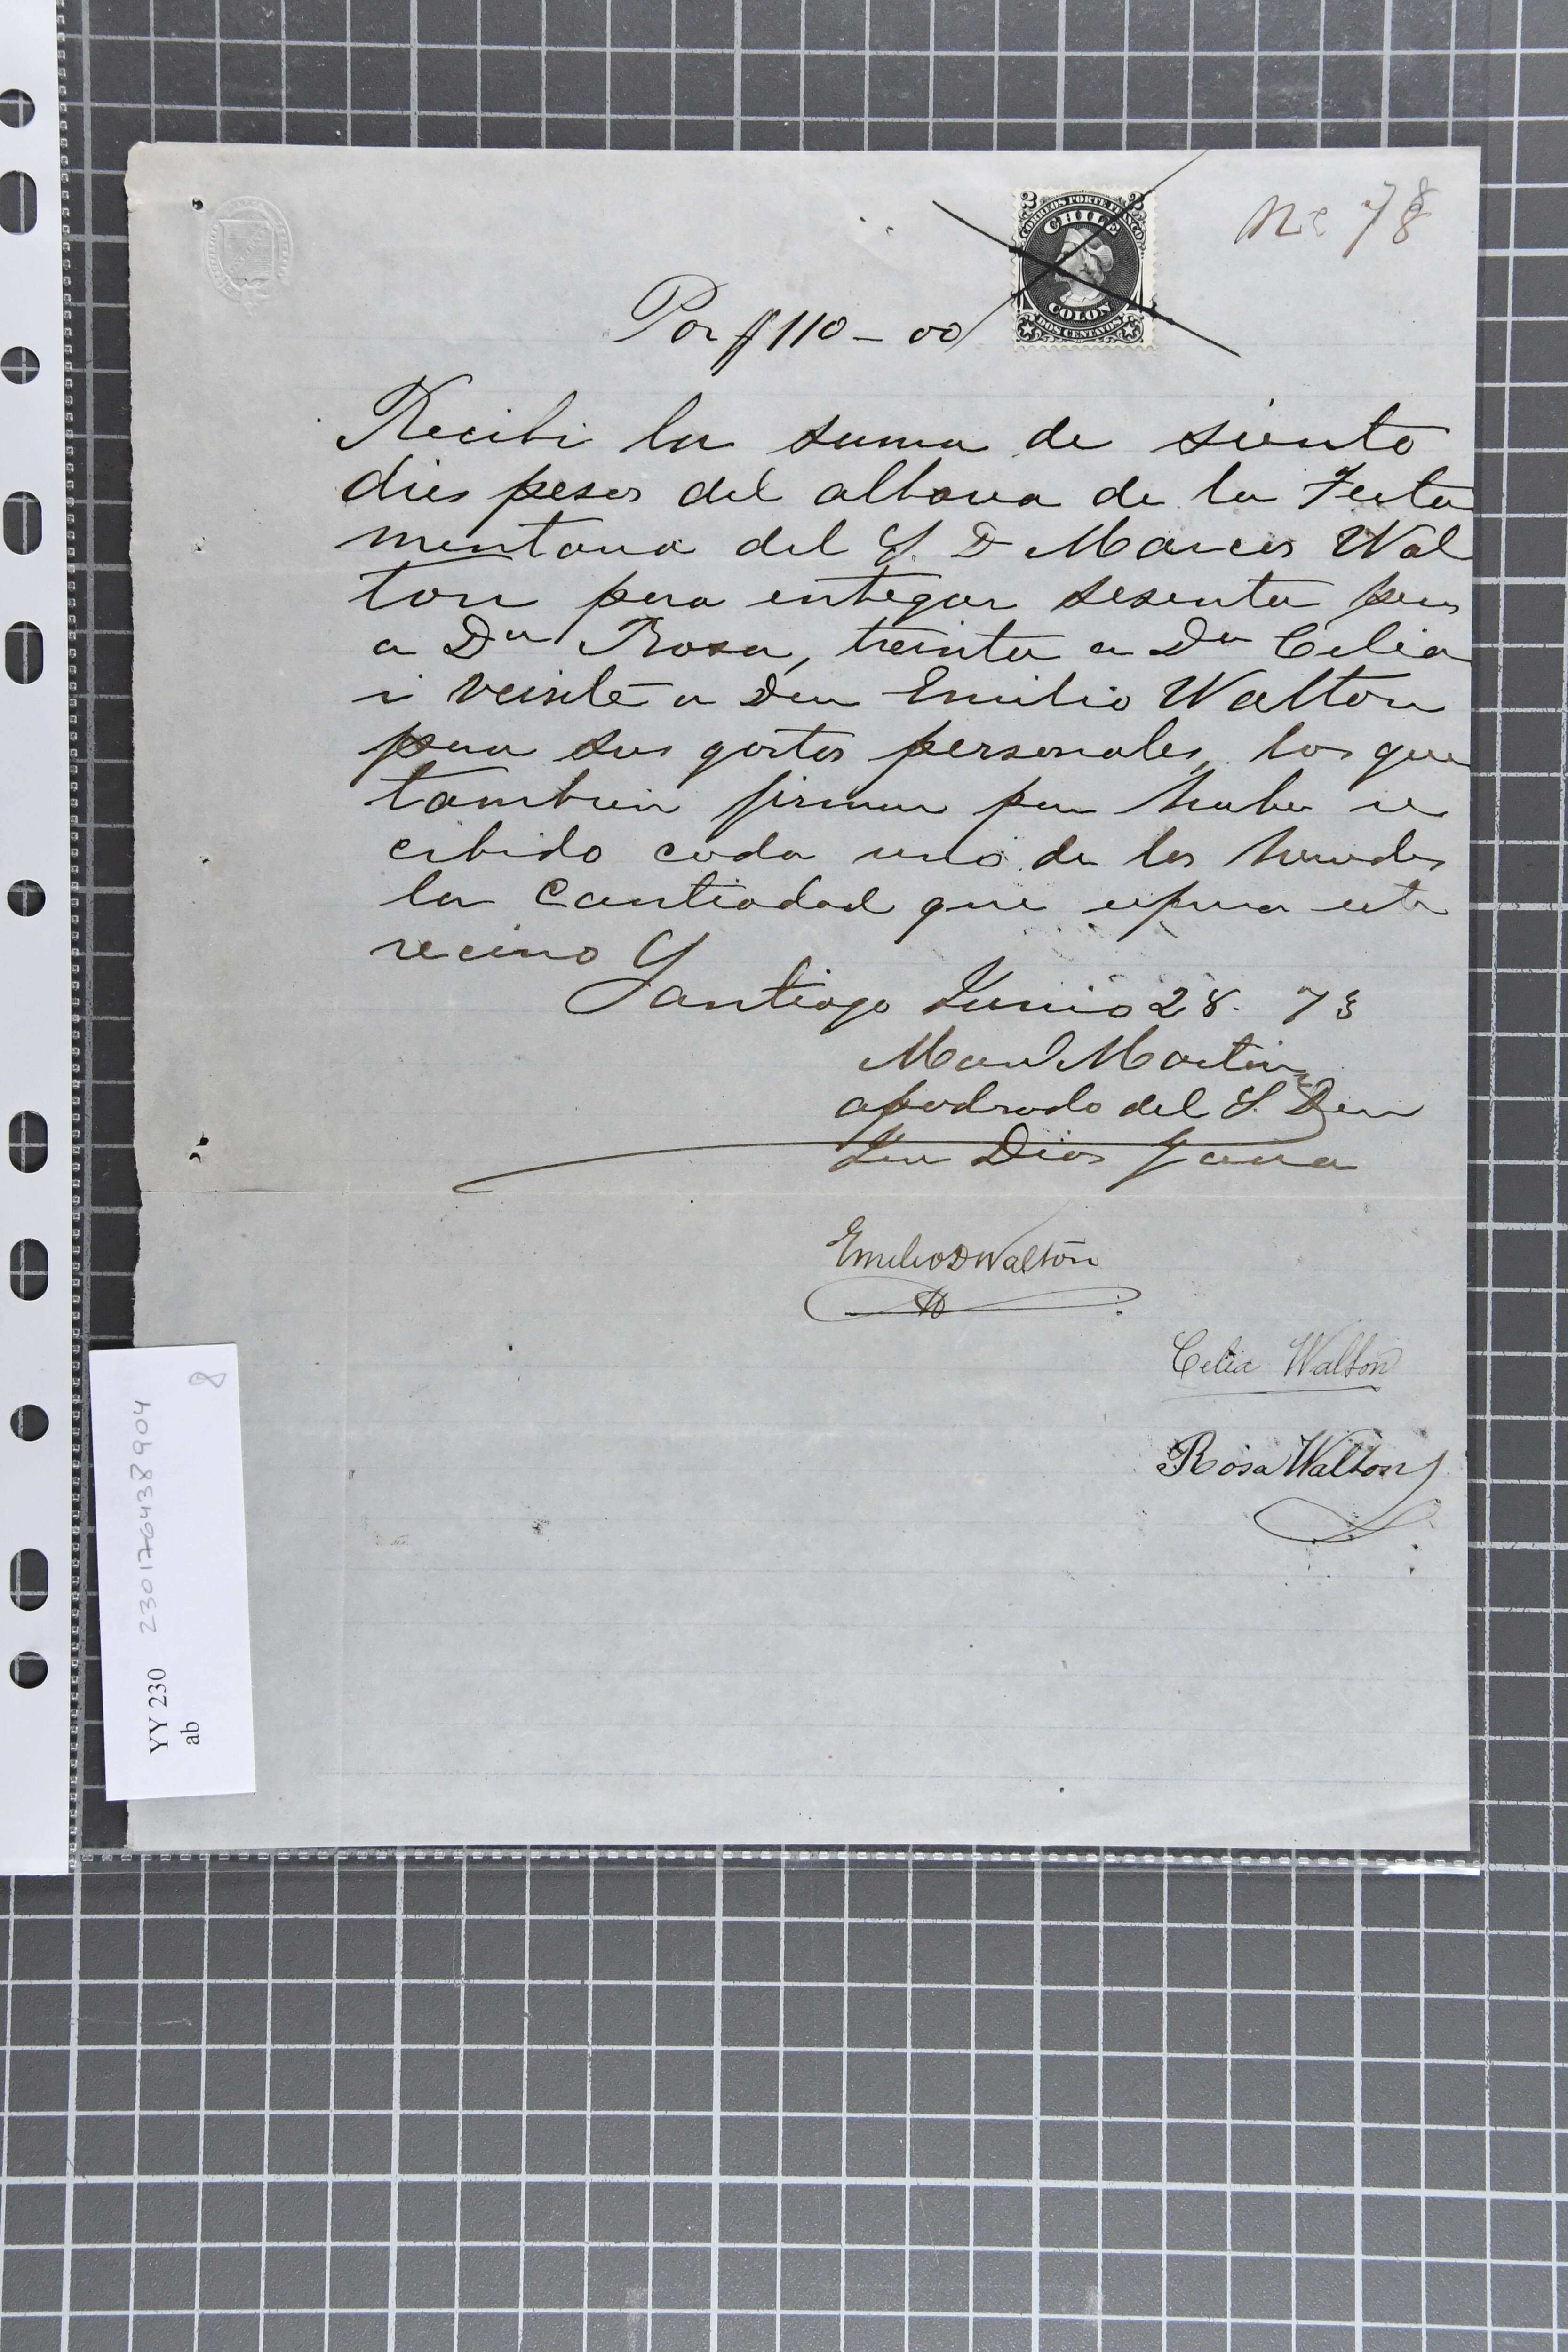 Nº 78
2 2
CORREOS PORTE FRANCO
CHILE
COLON
DOS CENTAVOS
Por $110-00
Recibi la suma de siento
dies pesos del albacea de la Testa
mentaria del S. D Marcos Wal
ton para entregar sesenta pesos
a Da Rosa, treinta a Da Celia
i veinte a Don Emilio Walton
para sus gastos personales, los que
tambien firman por haber re
cibido cada uno de los
la cantiadad que espresa este
recivo
Santiago Junio 28. 73
Manl Martinz
apodrado del S. Don
Jua Dios
Emilio D Walton
Celia Walton
Rosa Walton
YY 230 230176438904 8
ab